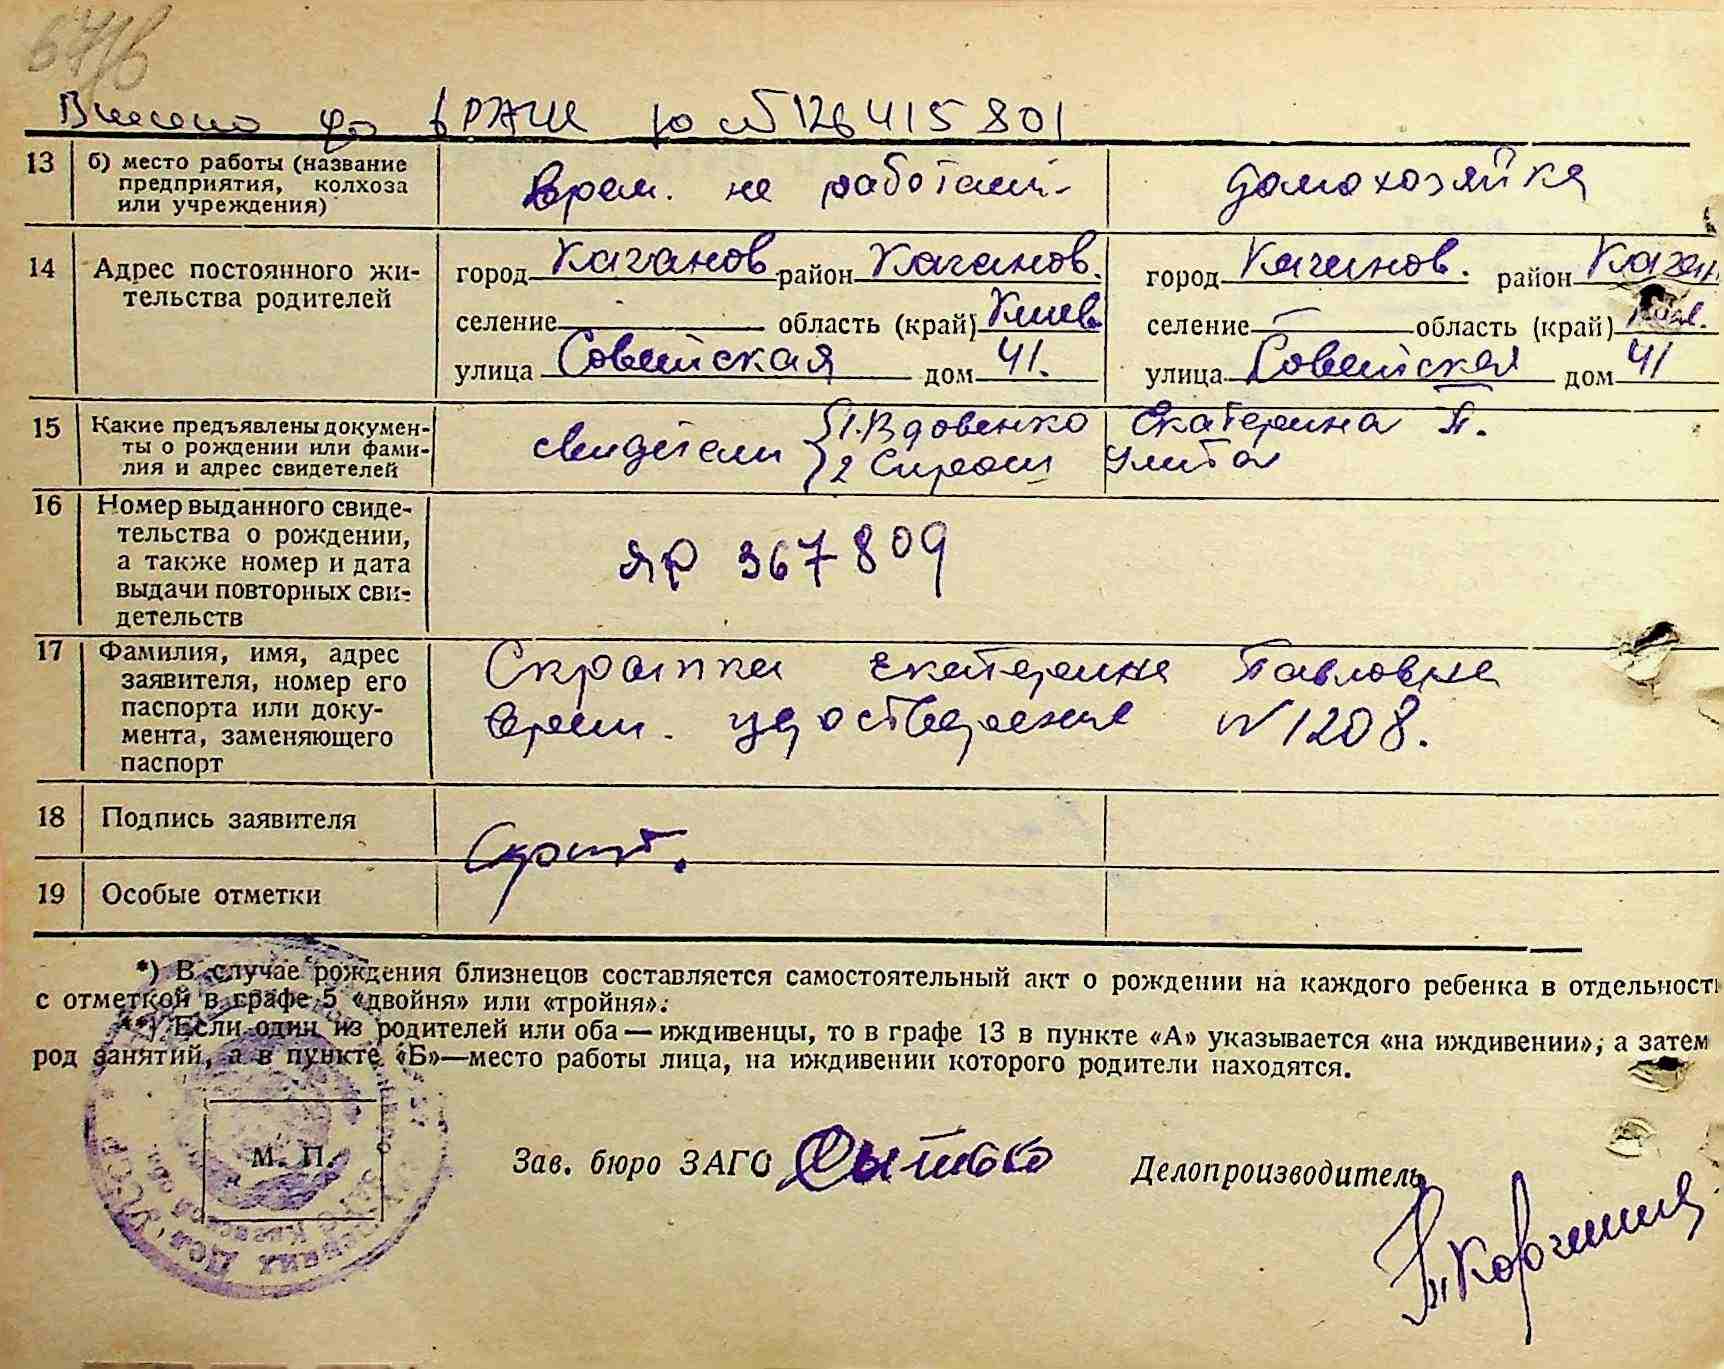 Внесено до ДРАЦС ю № 126415801
13 б) место работы (название
предприятия, колхоза
или учреждения)
врем. не работает
домохозяйка
14 Адрес постоянного жи-
тельства родителей
город Каганов. район Каганов.
селение область (край) Киев.
улица Советская дом 41.
город Каганов. район Каган
селение — область (край)
улица Советская дом 41
15 Какие предъявлены докумен-
ты о рождении или фами-
лия и адрес свидетелей
свидетели
1. Вдовенко Екатерина П.
2 Улита
16 Номер выданного свиде-
тельства о рождении,
а также номер и дата
выдачи повторных сви-
детельств
ЯР 367809
17 Фамилия, имя, адрес
заявителя, номер его
паспорта или доку-
мента, заменяющего
паспорт
Екатерина Павловна
врем. удостверение N 1208.
18 Подпись заявителя
19 Особые отметки
*) В случае рождения близнецов составляется самостоятельный акт о рождении на каждого ребенка в отдельност
с отметкой в графе 5 «двойня» или «тройня».
**) Если один из родителей или оба — иждивенцы, то в графе 13 в пункте «А» указывается «на иждивении», а затем
род занятий, а в пункте «Б»—место работы лица, на иждивении которого родители находятся.
М. П.
Зав. бюро ЗАГС
Делопроизводитель